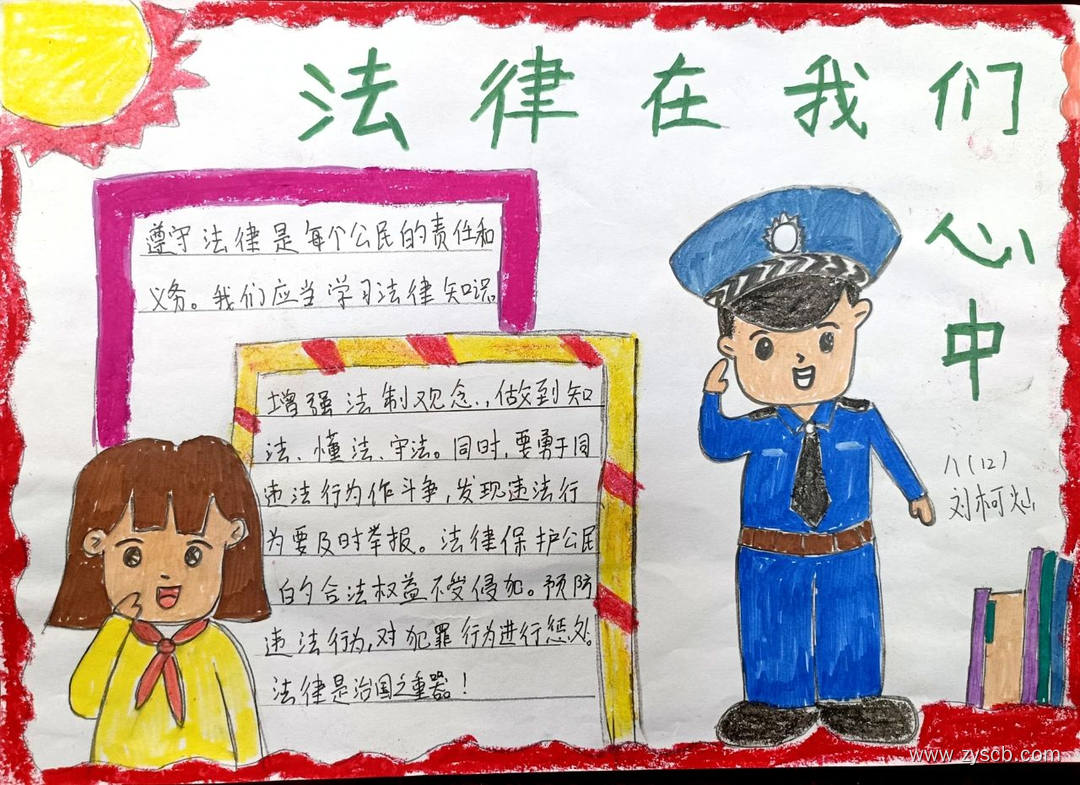 法律在我们
心中
遵守法律是每个公民的责任和
义务。我们应当学习法律知识
增强法制观念,做到知
法、懂法、守法。同时,要勇于同
违法行为作斗争,发现违法行
为要及时举报。法律保护公民
的合法权益不受侵犯。预防
违法行为,对犯罪行为进行惩处。
法律是治国之重器!
八(12)
刘柯灿
www.zyscb.com